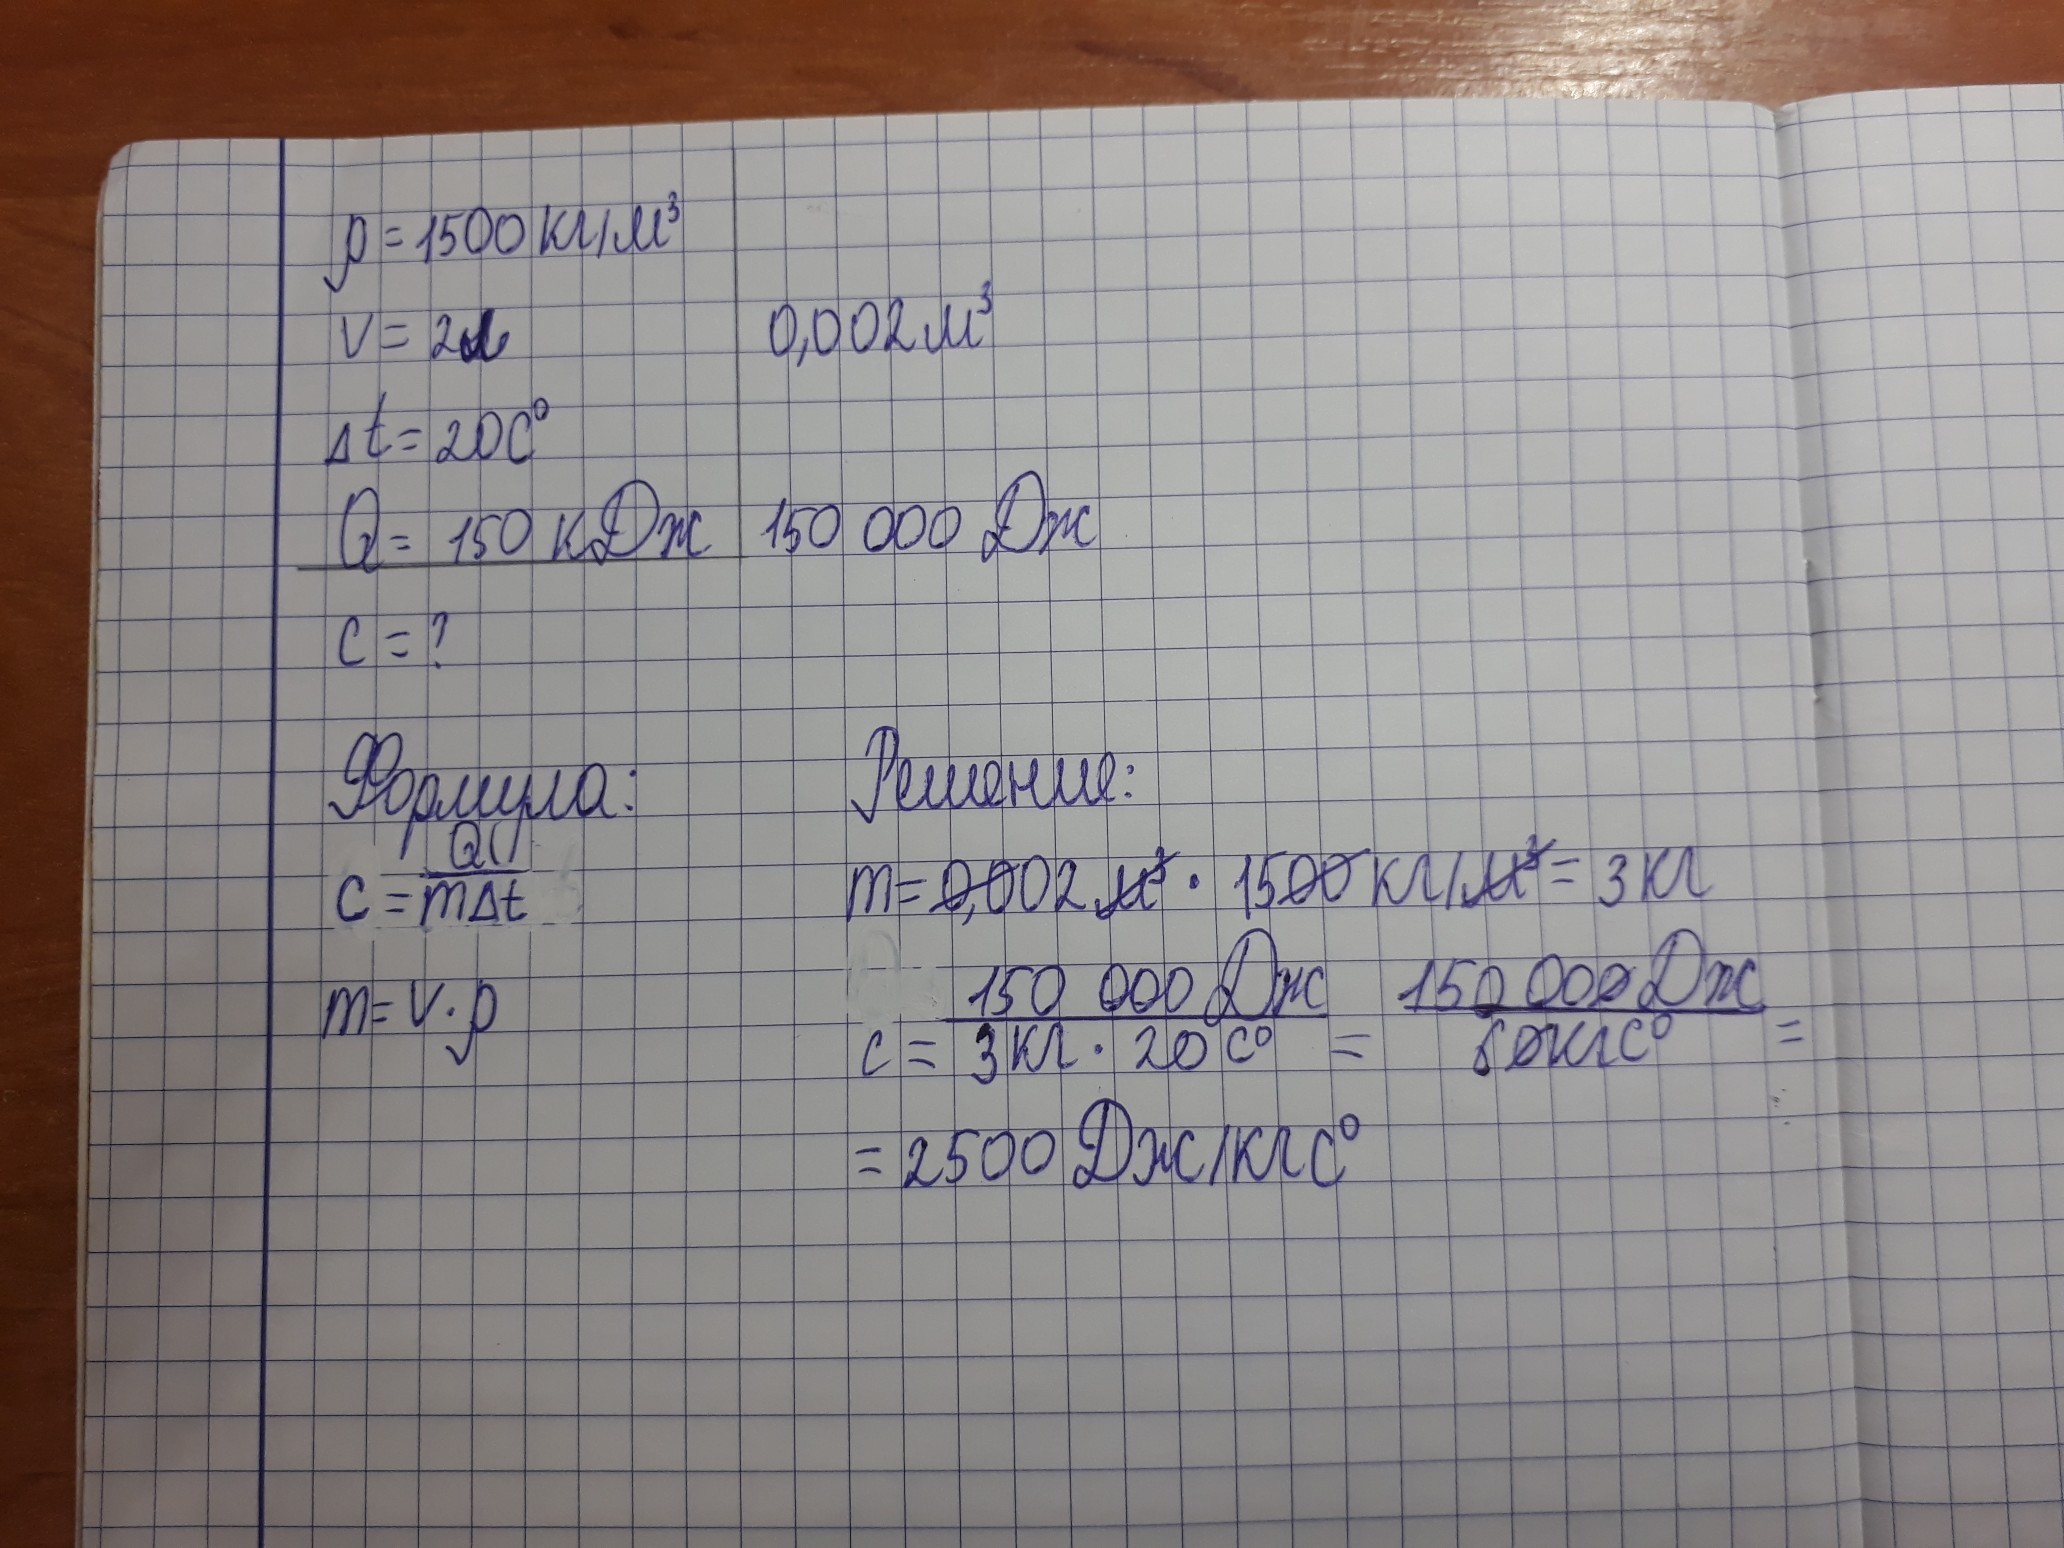 ρ = 1500 кг/м³
V = 2л 0,002 м³
Δt = 20С°
Q = 150 кДж 150 000 Дж
с = ?
Формула: Решение:
c = Q/mΔt
m = 0,002 м³ · 1500 кг/м³ = 3 кг
m = V · ρ
с = 150 000 Дж/3 кг · 20 С° = 150 000 Дж/60кгС° =
= 2500 Дж/кгС°